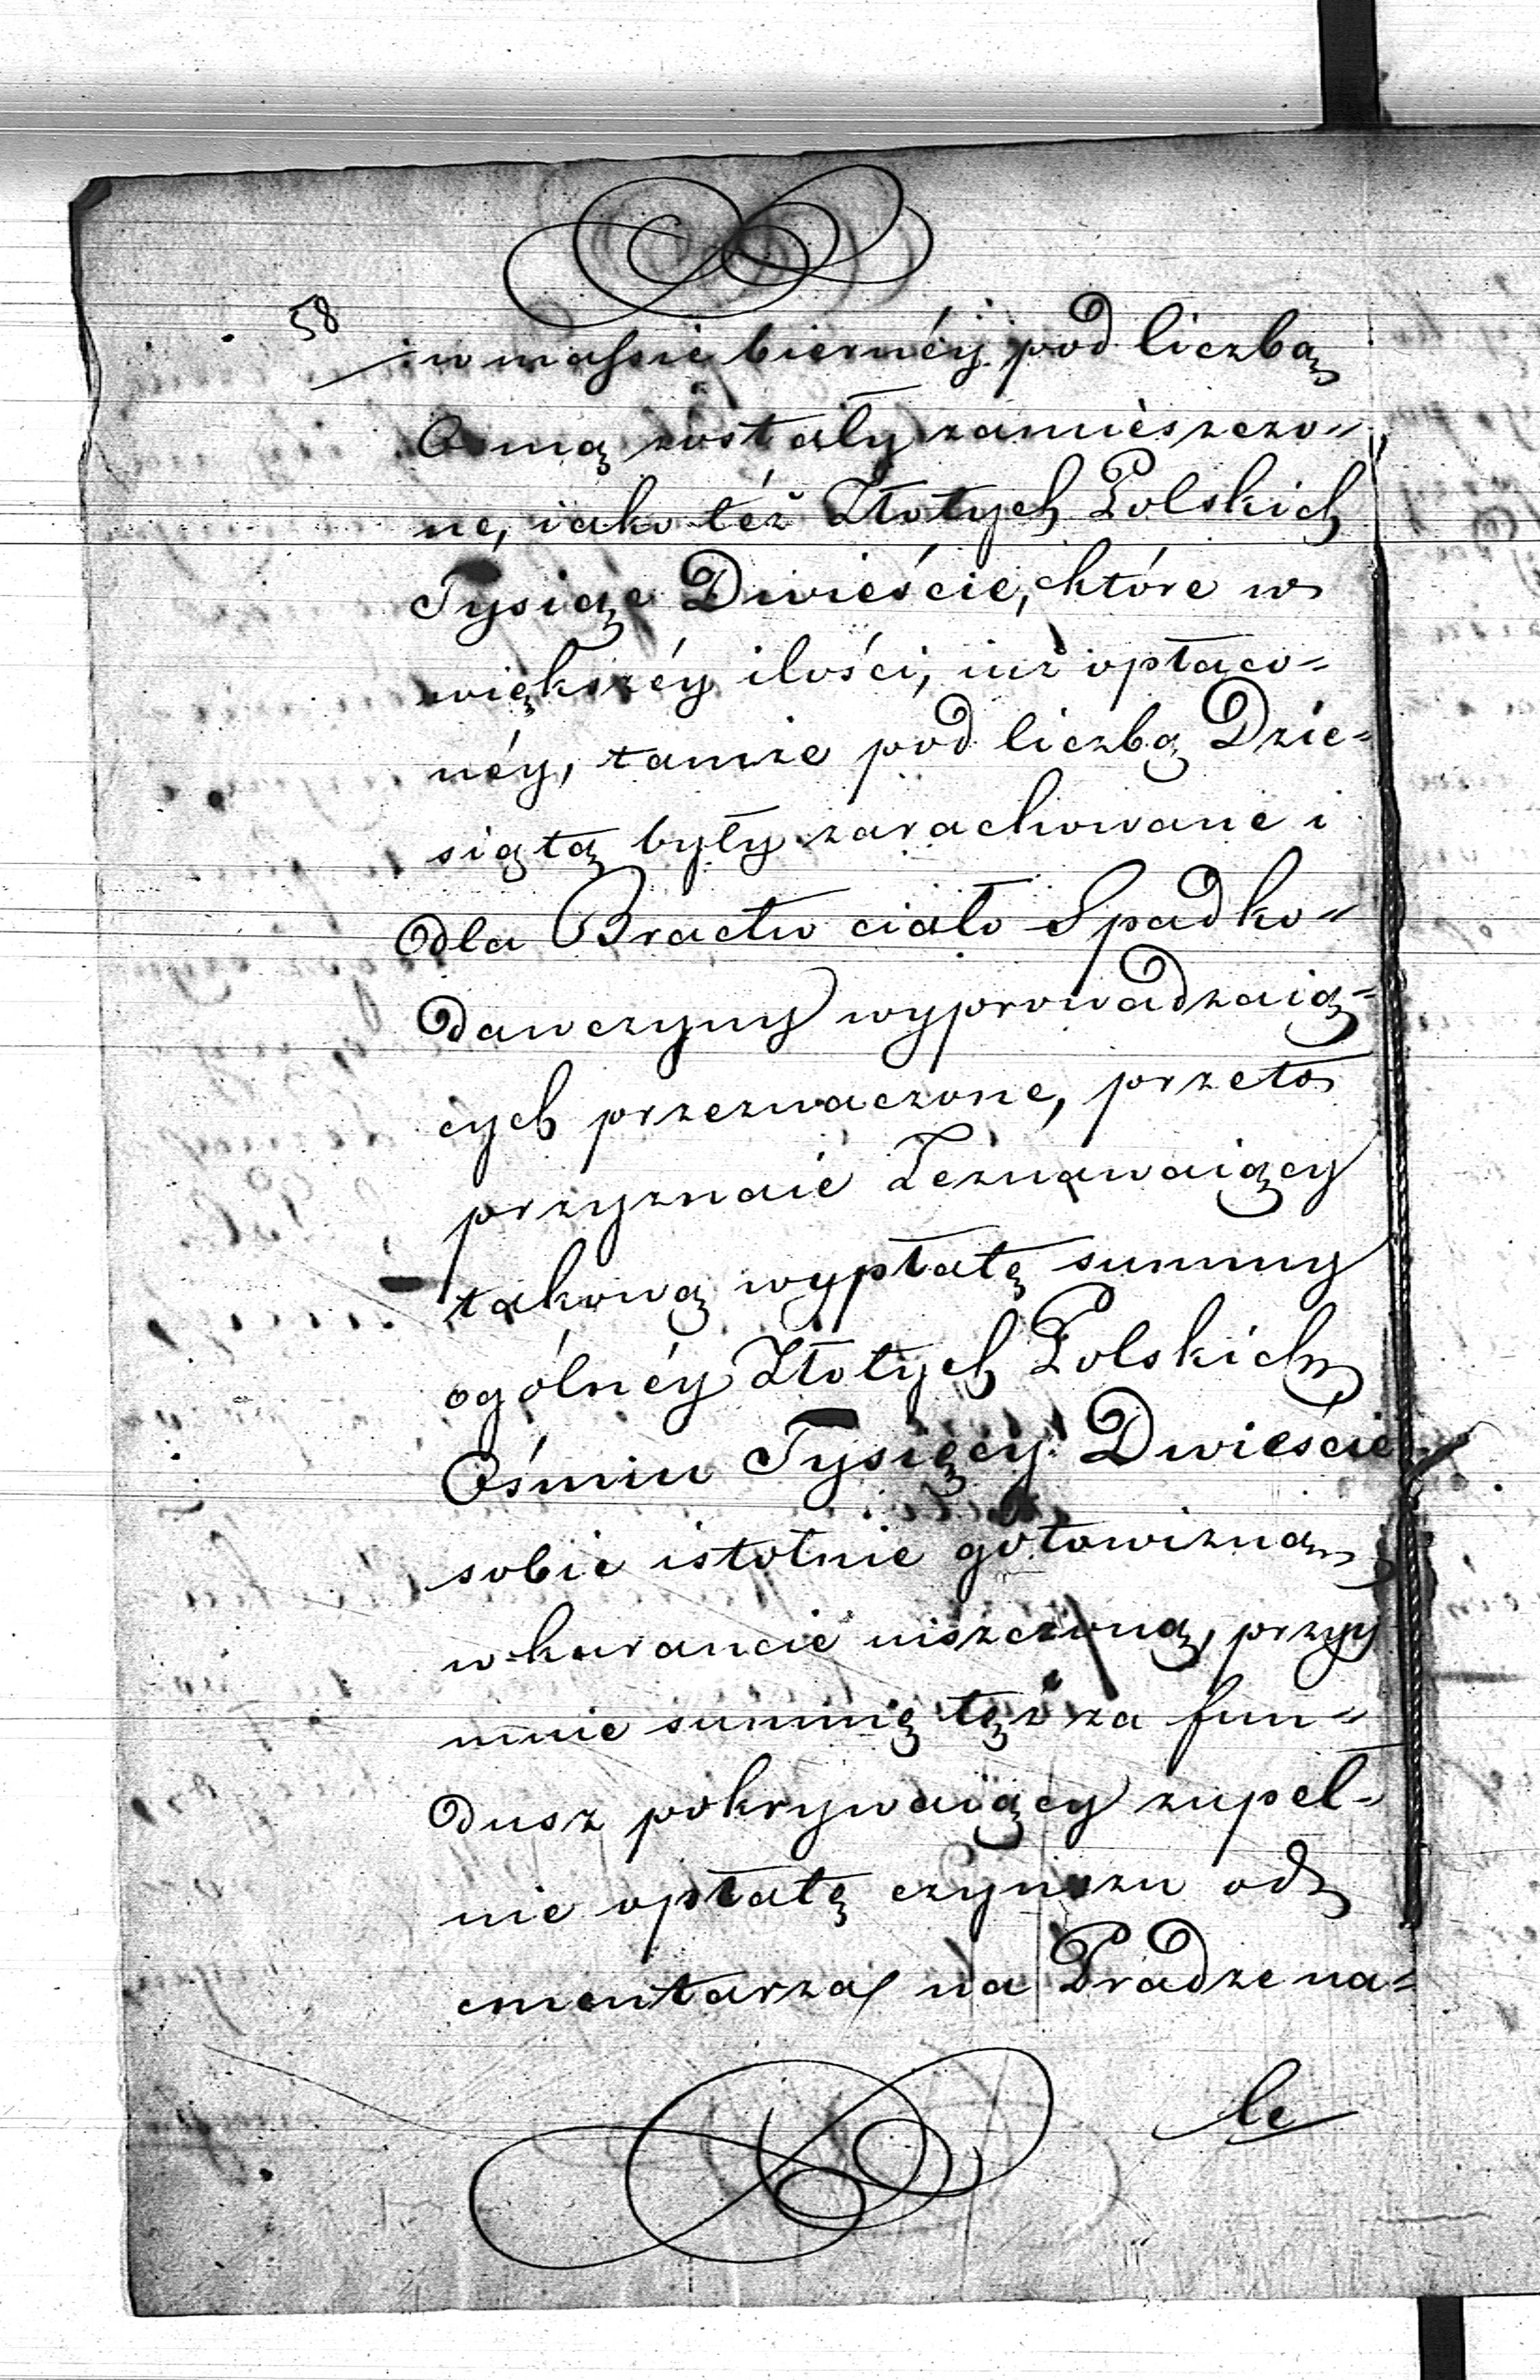 58
w massie biernéy pod liczbą
Osmą zostały zamieszczo=
ne, iako też Złotych Polskich
Tysiąc Dwieście, które w
większéy ilości, iuż opłaco=
néy, tamże pod liczbą Dzie=
siątą były zarachowane i
dla Bractw ciało Spadko=
dawczyny wyprowadzaią=
cych przeznaczone, przeto
przyznaie Zeznawaiący
takową wypłatę summy
ogólnéy Złotych Polskich
Ośmiu Tysięcy Dwieście
sobie istotnie gotowizną
w kurancie uiszczoną, przyy
mnie summę tęż za fun=
dusz pokrywaiący zupeł=
nie opłatę czynszu od
cmentarza na Pradze na=
le